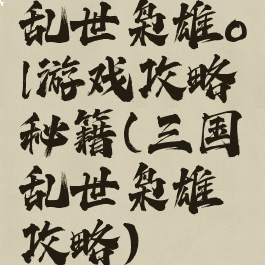 乱世枭雄。
|游戏攻略
秘籍(三国
乱世枭雄
攻略)